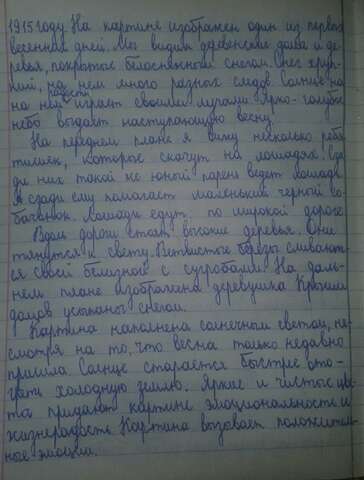 1915 году. На картине изображен один из первых
весенних дней. Мы видим деревенские дома и де-
ревья, покрытые белоснежным снегом. Снег хруп-
кий, на нем много разных следов. Солнце на-
на нем играет своими лучами. Ярко-голубое
небо выдает наступающую весну.
На переднем плане я вижу несколько ребя
тишек, которые скачут на лошадях. Сза
ди них такой же юный парень ведет лошадь.
А сзади ему помогает маленький черный со-
бачонок. Лошади едут по широкой дороге.
Вдоль дороги стоят высокие деревья. Они
тянутся к свету. Ветвистые березы сливают-
ся своей белизной с сугробами. На даль-
нем плане изображена деревушка. Крыши
домов усыпаны снегом.
Картина наполнена солнечным светом, не-
смотря на то, что весна только недавно
пришла. Солнце старается быстрее ото-
греть холодную землю. Яркие и чистые цве
та придают картине эмоциональность и
жизнерадость. Картина вызывает положитель-
ные эмоции.